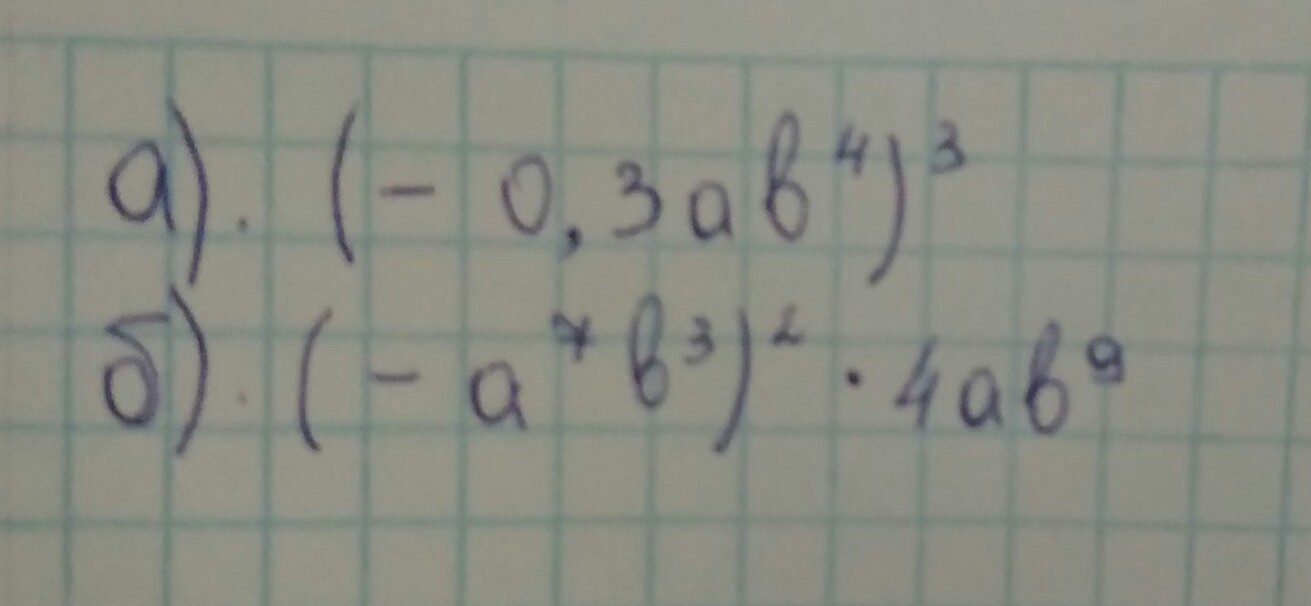 а). (- 0,3ab⁴)³
б). (- a⁷b³)² · 4ab⁹